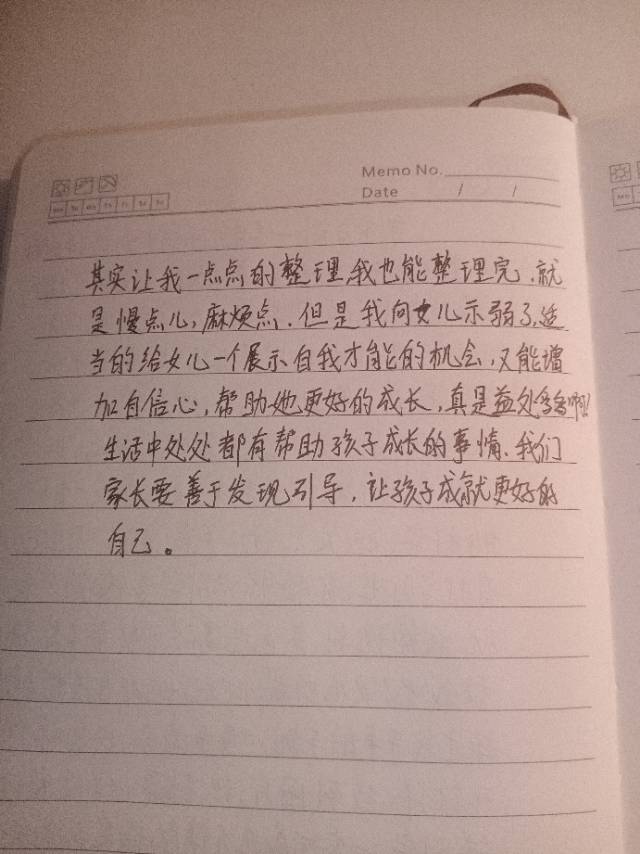 Memo No.
Date / /
其实让我一点点的整理,我也能整理完,就
是慢点儿,麻烦点.但是我向女儿示弱了,适
当的给女儿一个展示自我才能的机会,又能增
加自信心,帮助她更好的成长,真是益处多多啊!
生活中处处都有帮助孩子成长的事情、我们
家长要善于发现引导,让孩子成就更好的
自己。